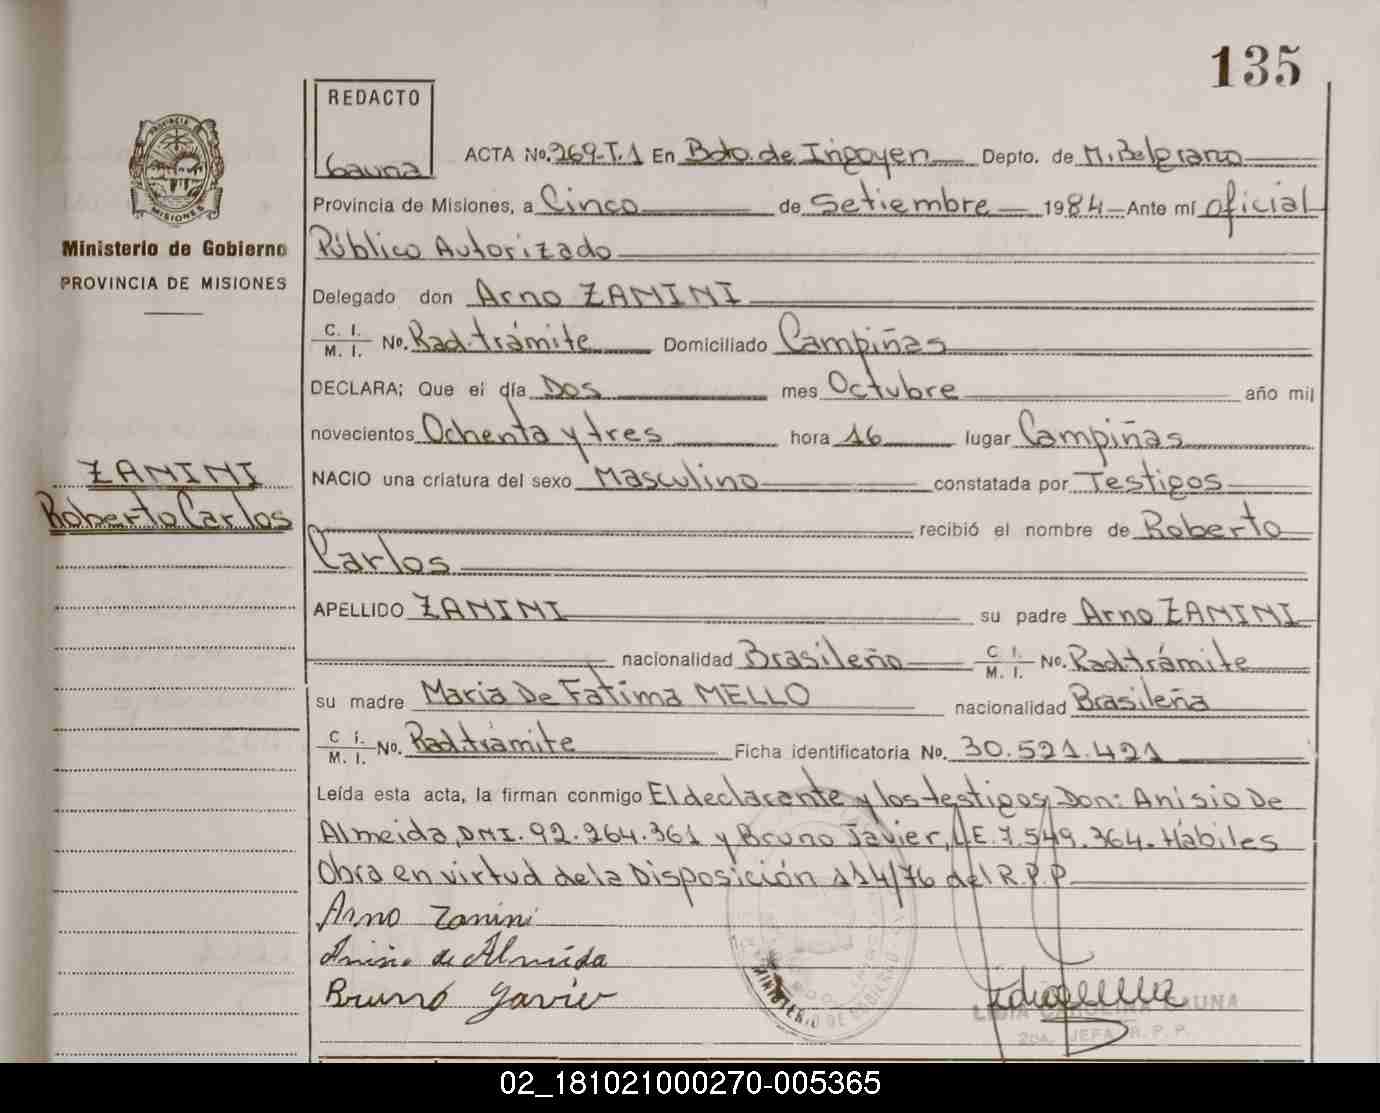 135
REDACTO
Gauna
PROVINCIA
MISIONES
Ministerio de Gobierno
PROVINCIA DE MISIONES
ACTA No. 269-T.1 En Bdo. de Irigoyen Depto. de M. Belgrano
Provincia de Misiones, a Cinco de Setiembre 1984 Ante mí oficial
Público Autorizado
Delegado don Arno ZANINI
C. I. M. I. No. Rad. trámite Domiciliado Campiñas
DECLARA; Que el día Dos mes Octubre año mil
novecientos Ochenta y tres hora 16 lugar Campiñas
NACIO una criatura del sexo Masculino constatada por Testigos
ZANINI
Roberto Carlos
recibió el nombre de Roberto
Carlos
APELLIDO ZANINI su padre Arno ZANINI
nacionalidad Brasileño C. I. M. I. No. Rad. trámite
su madre Maria De Fatima MELLO nacionalidad Brasileña
C. I. M. I. No. Rad. trámite Ficha identificatoria No. 30.521.421
Leída esta acta, la firman conmigo El declarante y los testigos, Don: Anisio De
Almeida, DNI. 92.264.361 y Bruno Javier, LE. 7.549.364. Hábiles
Obra en virtud de la Disposición 114/76 del R.P.P
Arno Zanini
Anisio de Almeida
Bruno Javier
MINISTERIO DE GOBIERNO
LIDIA CAROLINA GAUNA
2da. JEFA R. P. P.
02_181021000270-005365